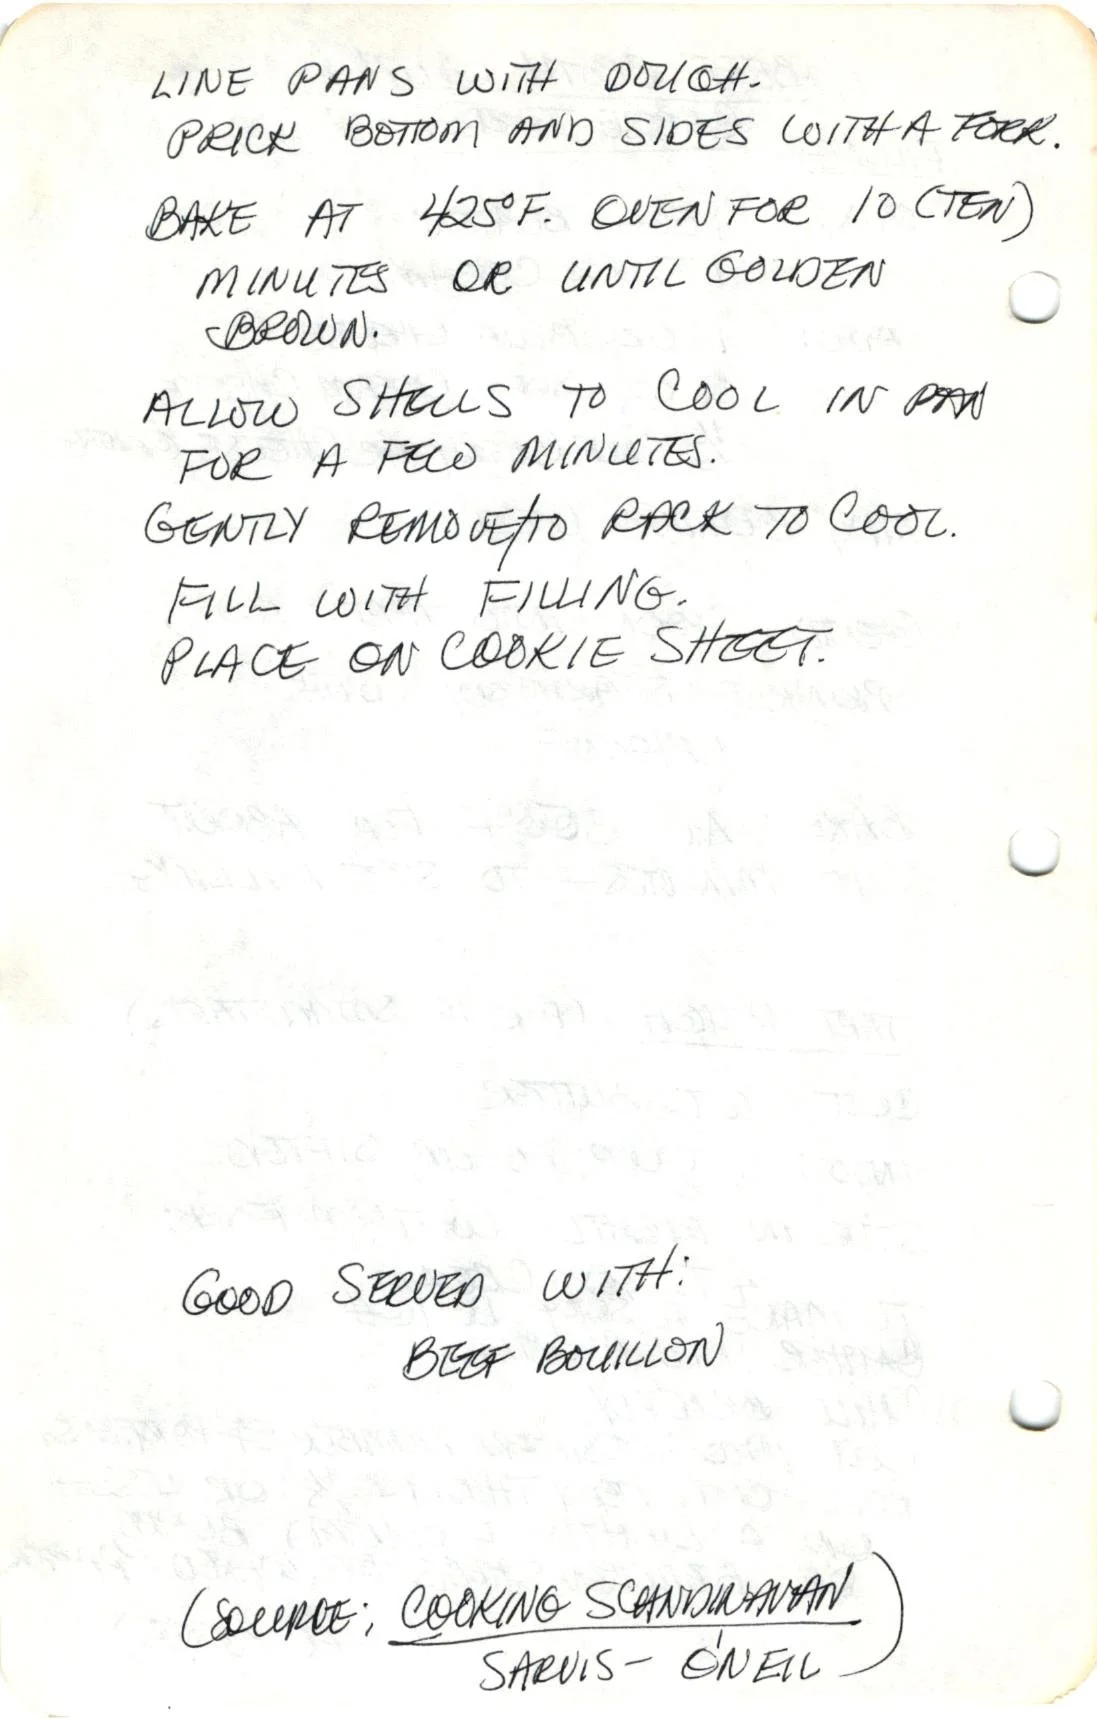 LINE PANS WITH DOUGH.
PRICK BOTTOM AND SIDES WITH A FORK.
BAKE AT 425°F. OVEN FOR 10 (TEN)
MINUTES OR UNTIL GOLDEN
BROWN.
ALLOW SHELLS TO COOL IN PAN
FOR A FEW MINUTES.
GENTLY REMOVE/TO RACK TO COOL.
FILL WITH FILLING.
PLACE ON COOKIE SHEET.
GOOD SERVED WITH:
BEEF BOUILLON
(SOURCE: COOKING SCANDINAVIAN
SARVIS - O'NEIL)